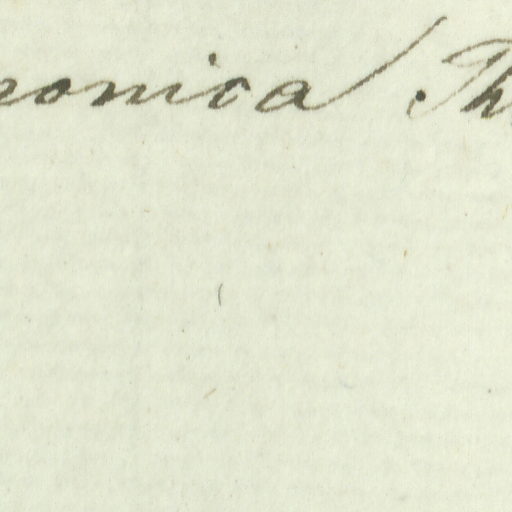 ronica Th